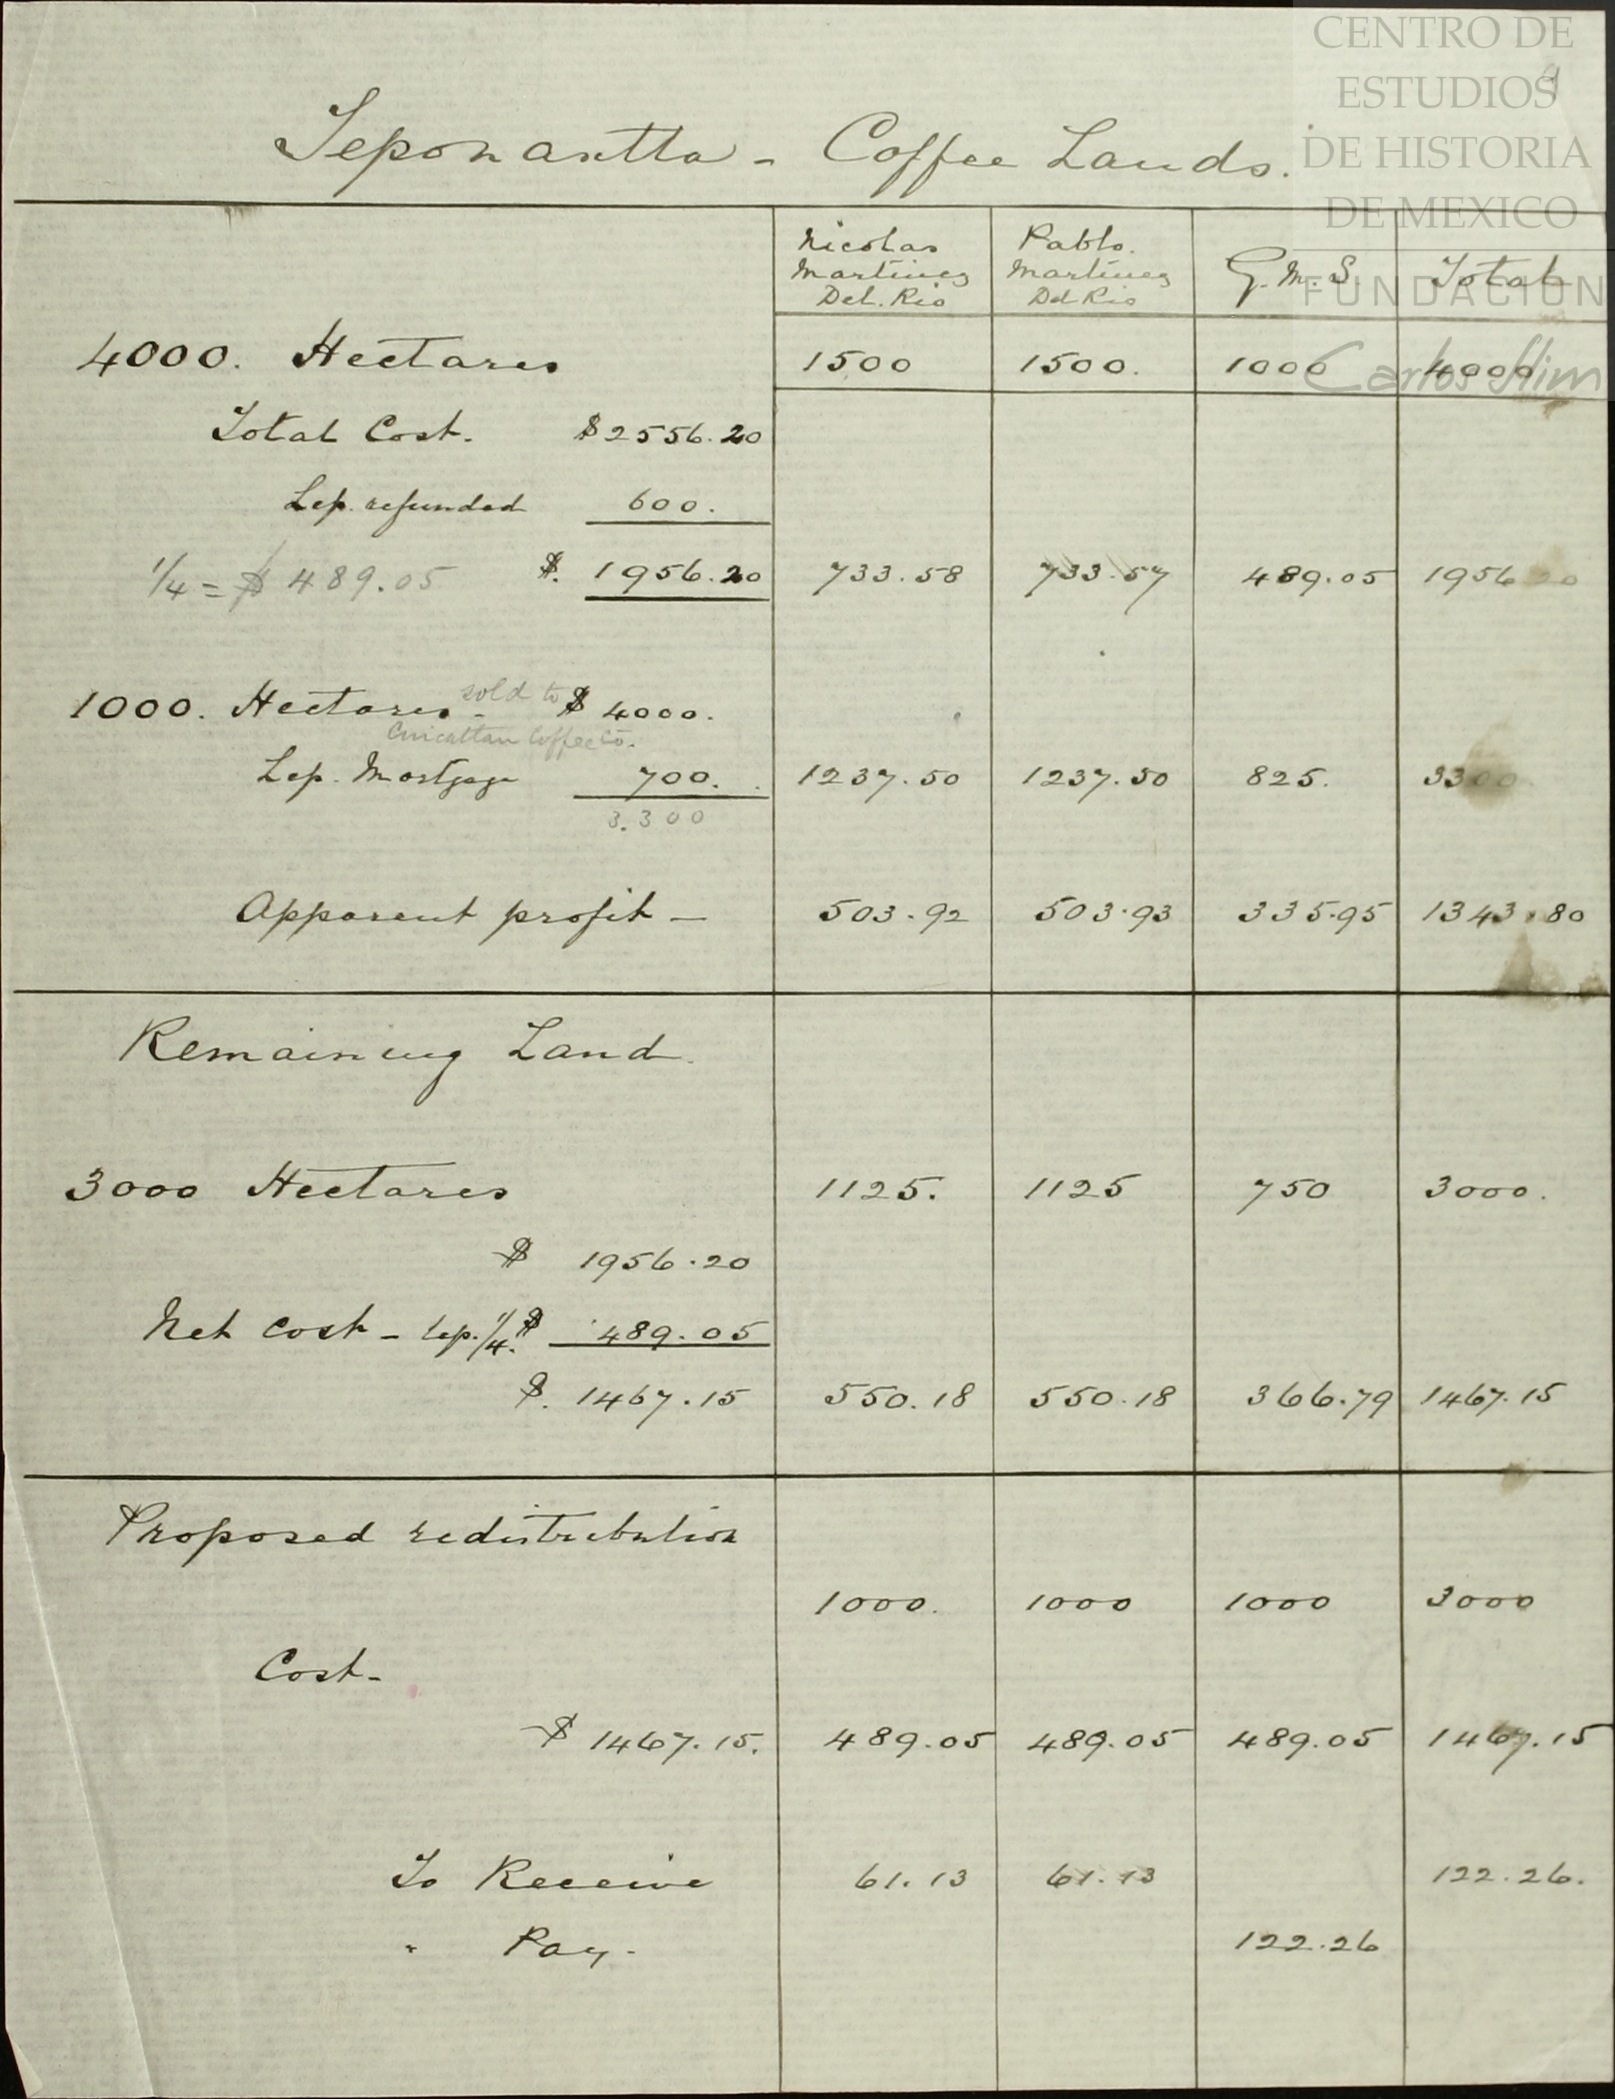 CENTRO DE
ESTUDIOS
DE HISTORIA
DE MEXICO
FUNDACION
Carlos Slim
Teponaxtla - Coffee Lands.
Nicolas Martinez Del. Rio
Pablo. Martinez Del Rio
G. M. S.
Total
4000. Hectares 1500 1500. 1000 4000
Total Cost. $2556.20
Less refunded 600.
1/4 = $ 489.05 $. 1956.20 733.58 733.57 489.05 1956.20
1000. Hectares - sold to $ 4000.
Cuicatlan Coffee Co.
Less. Mortgage 700. 1237.50 1237.50 825. 3300
3.300
Apparent profit — 503.92 503.93 335.95 1343.80
Remaining Land.
3000 Hectares 1125. 1125 750 3000.
$ 1956.20
Net Cost - less. 1/4. $ 489.05
$. 1467.15 550.18 550.18 366.79 1467.15
Proposed redistribution
1000. 1000 1000 3000
Cost-
$ 1467.15. 489.05 489.05 489.05 1467.15
To Receive 61.13 61.13 122.26.
" Pay. 122.26